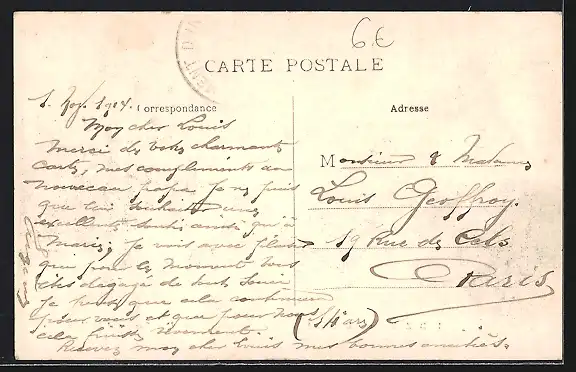 6€
CARTE POSTALE
Correspondance
Adresse
1. 1914.
Mon cher Louis
Merci de votre charmante
carte, mes compliments au
nouveau papa je ne puis
que lui souhaiter une
excellente santé ainsi qu'à
Marie; Je vois avec plaisir
que pour le moment vous
êtes dégagé de tout souci
Je que cela continuera
pour vous et que pour nous
cela vivement.
Recevez mon cher Louis mes bonnes amitiés.
Monsieur & Madame
Louis Geoffroy.
19 Rue de Cels
Paris